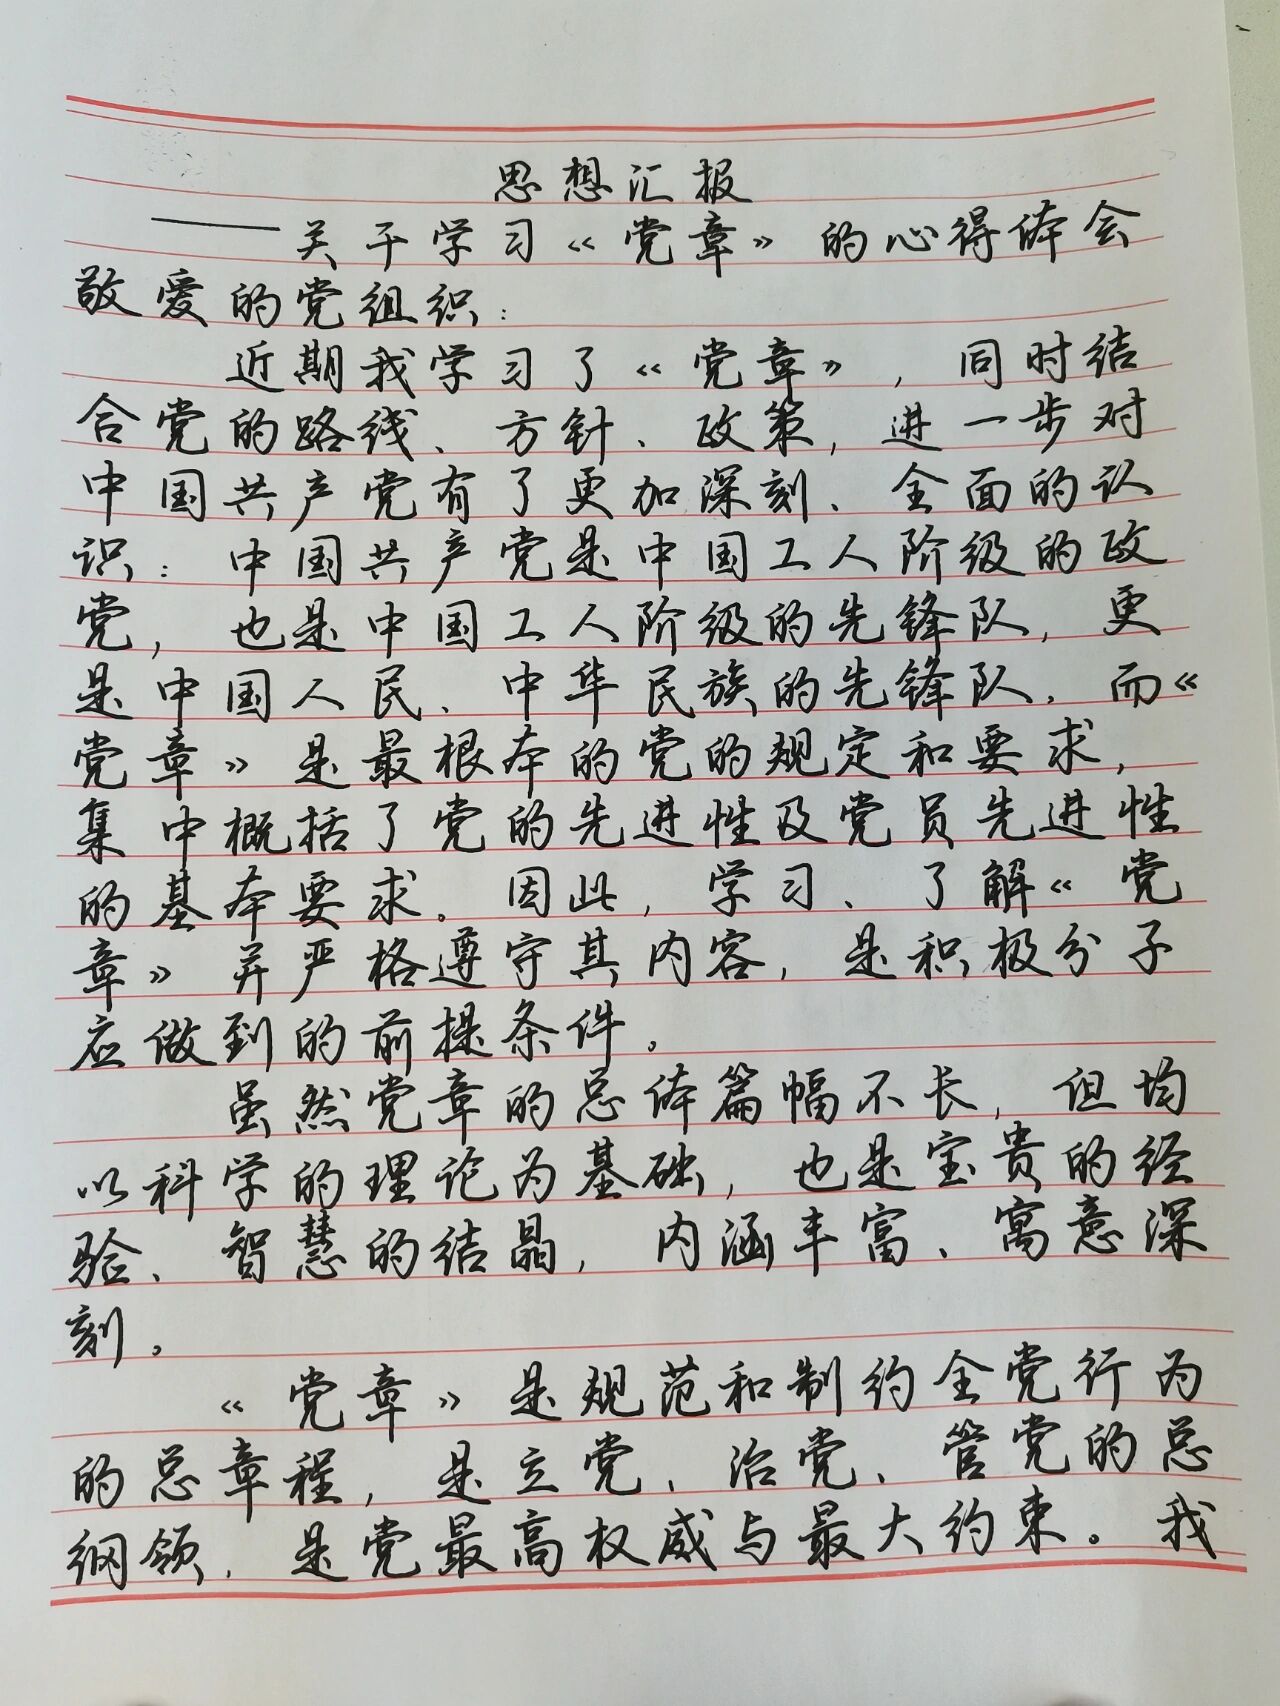 思想汇报
——关于学习《党章》的心得体会
敬爱的党组织：
近期我学习了《党章》，同时结
合党的路线、方针、政策，进一步对
中国共产党有了更加深刻、全面的认
识：中国共产党是中国工人阶级的政
党，也是中国工人阶级的先锋队，更
是中国人民、中华民族的先锋队，而《
党章》是最根本的党的规定和要求，
集中概括了党的先进性及党员先进性
的基本要求。因此，学习、了解《党
章》并严格遵守其内容，是积极分子
应做到的前提条件。
虽然党章的总体篇幅不长，但均
以科学的理论为基础，也是宝贵的经
验、智慧的结晶，内涵丰富、寓意深
刻。
《党章》是规范和制约全党行为
的总章程，是立党、治党、管党的总
纲领，是党最高权威与最大约束。我